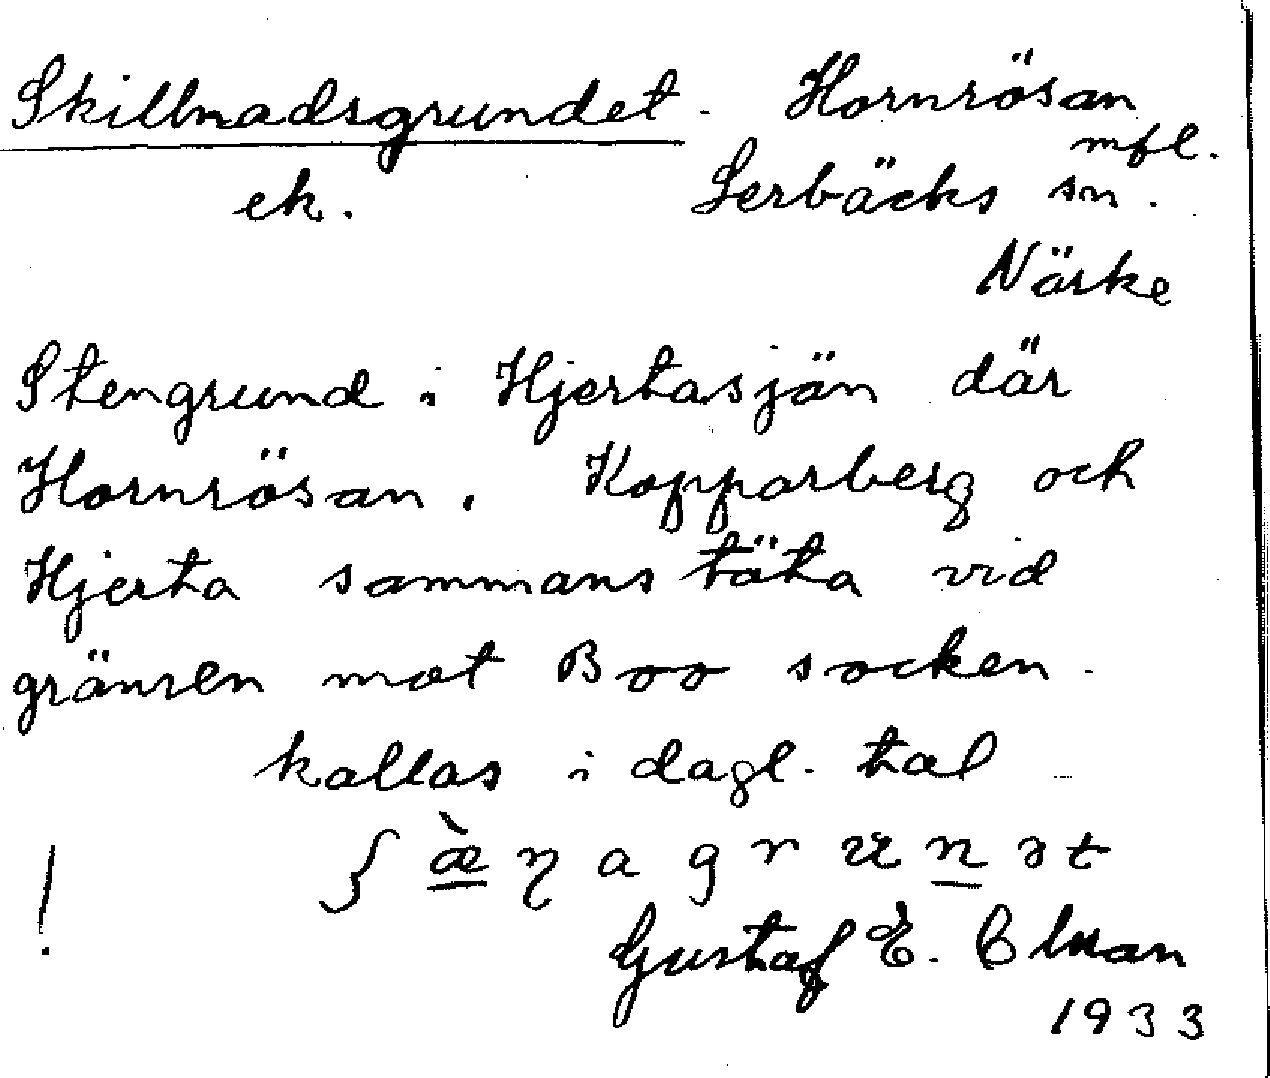 Skillnadsgrundet. Hornrösan
mfl.
ek. Lerbäcks sn.
Närke
Stengrund i Hjertasjön där
Hornrösan, Kopparberg och
Hjerta sammanstöta vid
gränsen mot Boo socken.
kallas i dagl. tal
! ʃæ̀ŋagrunət
Gustaf E.
1933